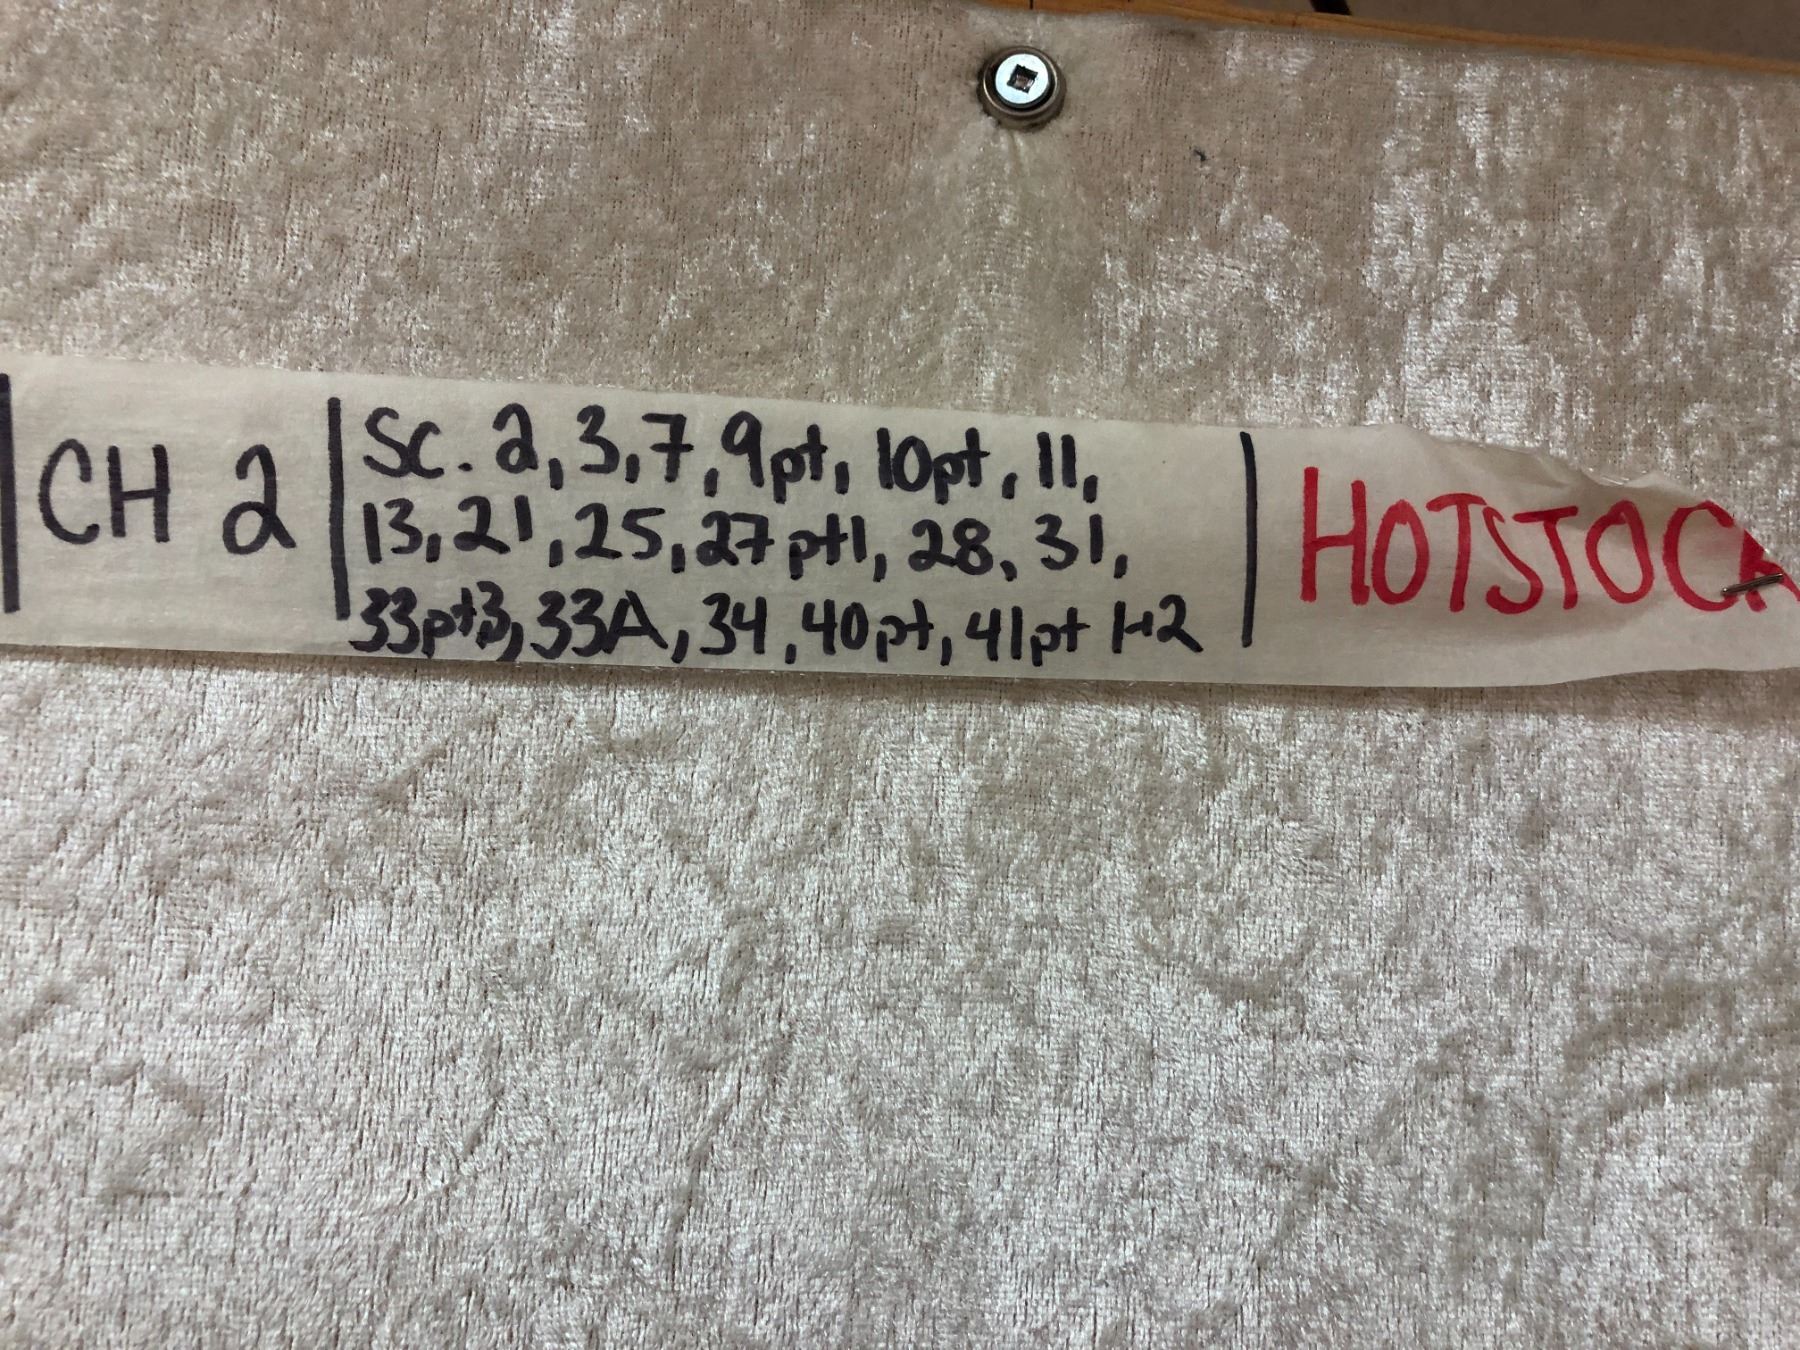 CH 2
Sc. 2, 3, 7, 9pt, 10pt, 11,
13, 21, 25, 27 pt1, 28, 31,
33pt3, 33A, 34, 40pt, 41pt 1+2
HOTSTOCK